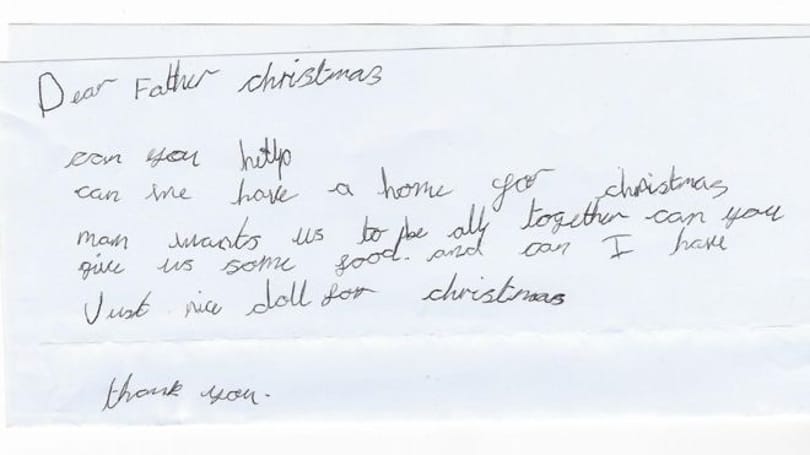 Dear Father christmas
can you help
can we have a home for christmas
mam wants us to be all together can you
give us some food. and can I have
Just nice doll for christmas
thank you.